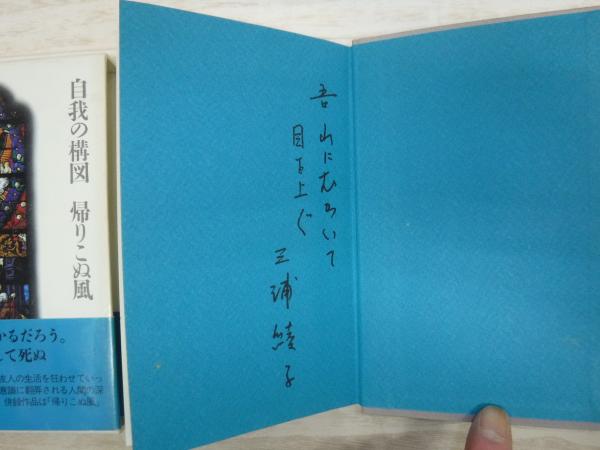 吾 山にむかいて
目を上ぐ
三浦綾子
自我の構図 帰りこぬ風
かるだろう。
て死ぬ
友人の生活を狂わせていっ
意識に翻弄される人間の深
併録作品は「帰りこぬ風」